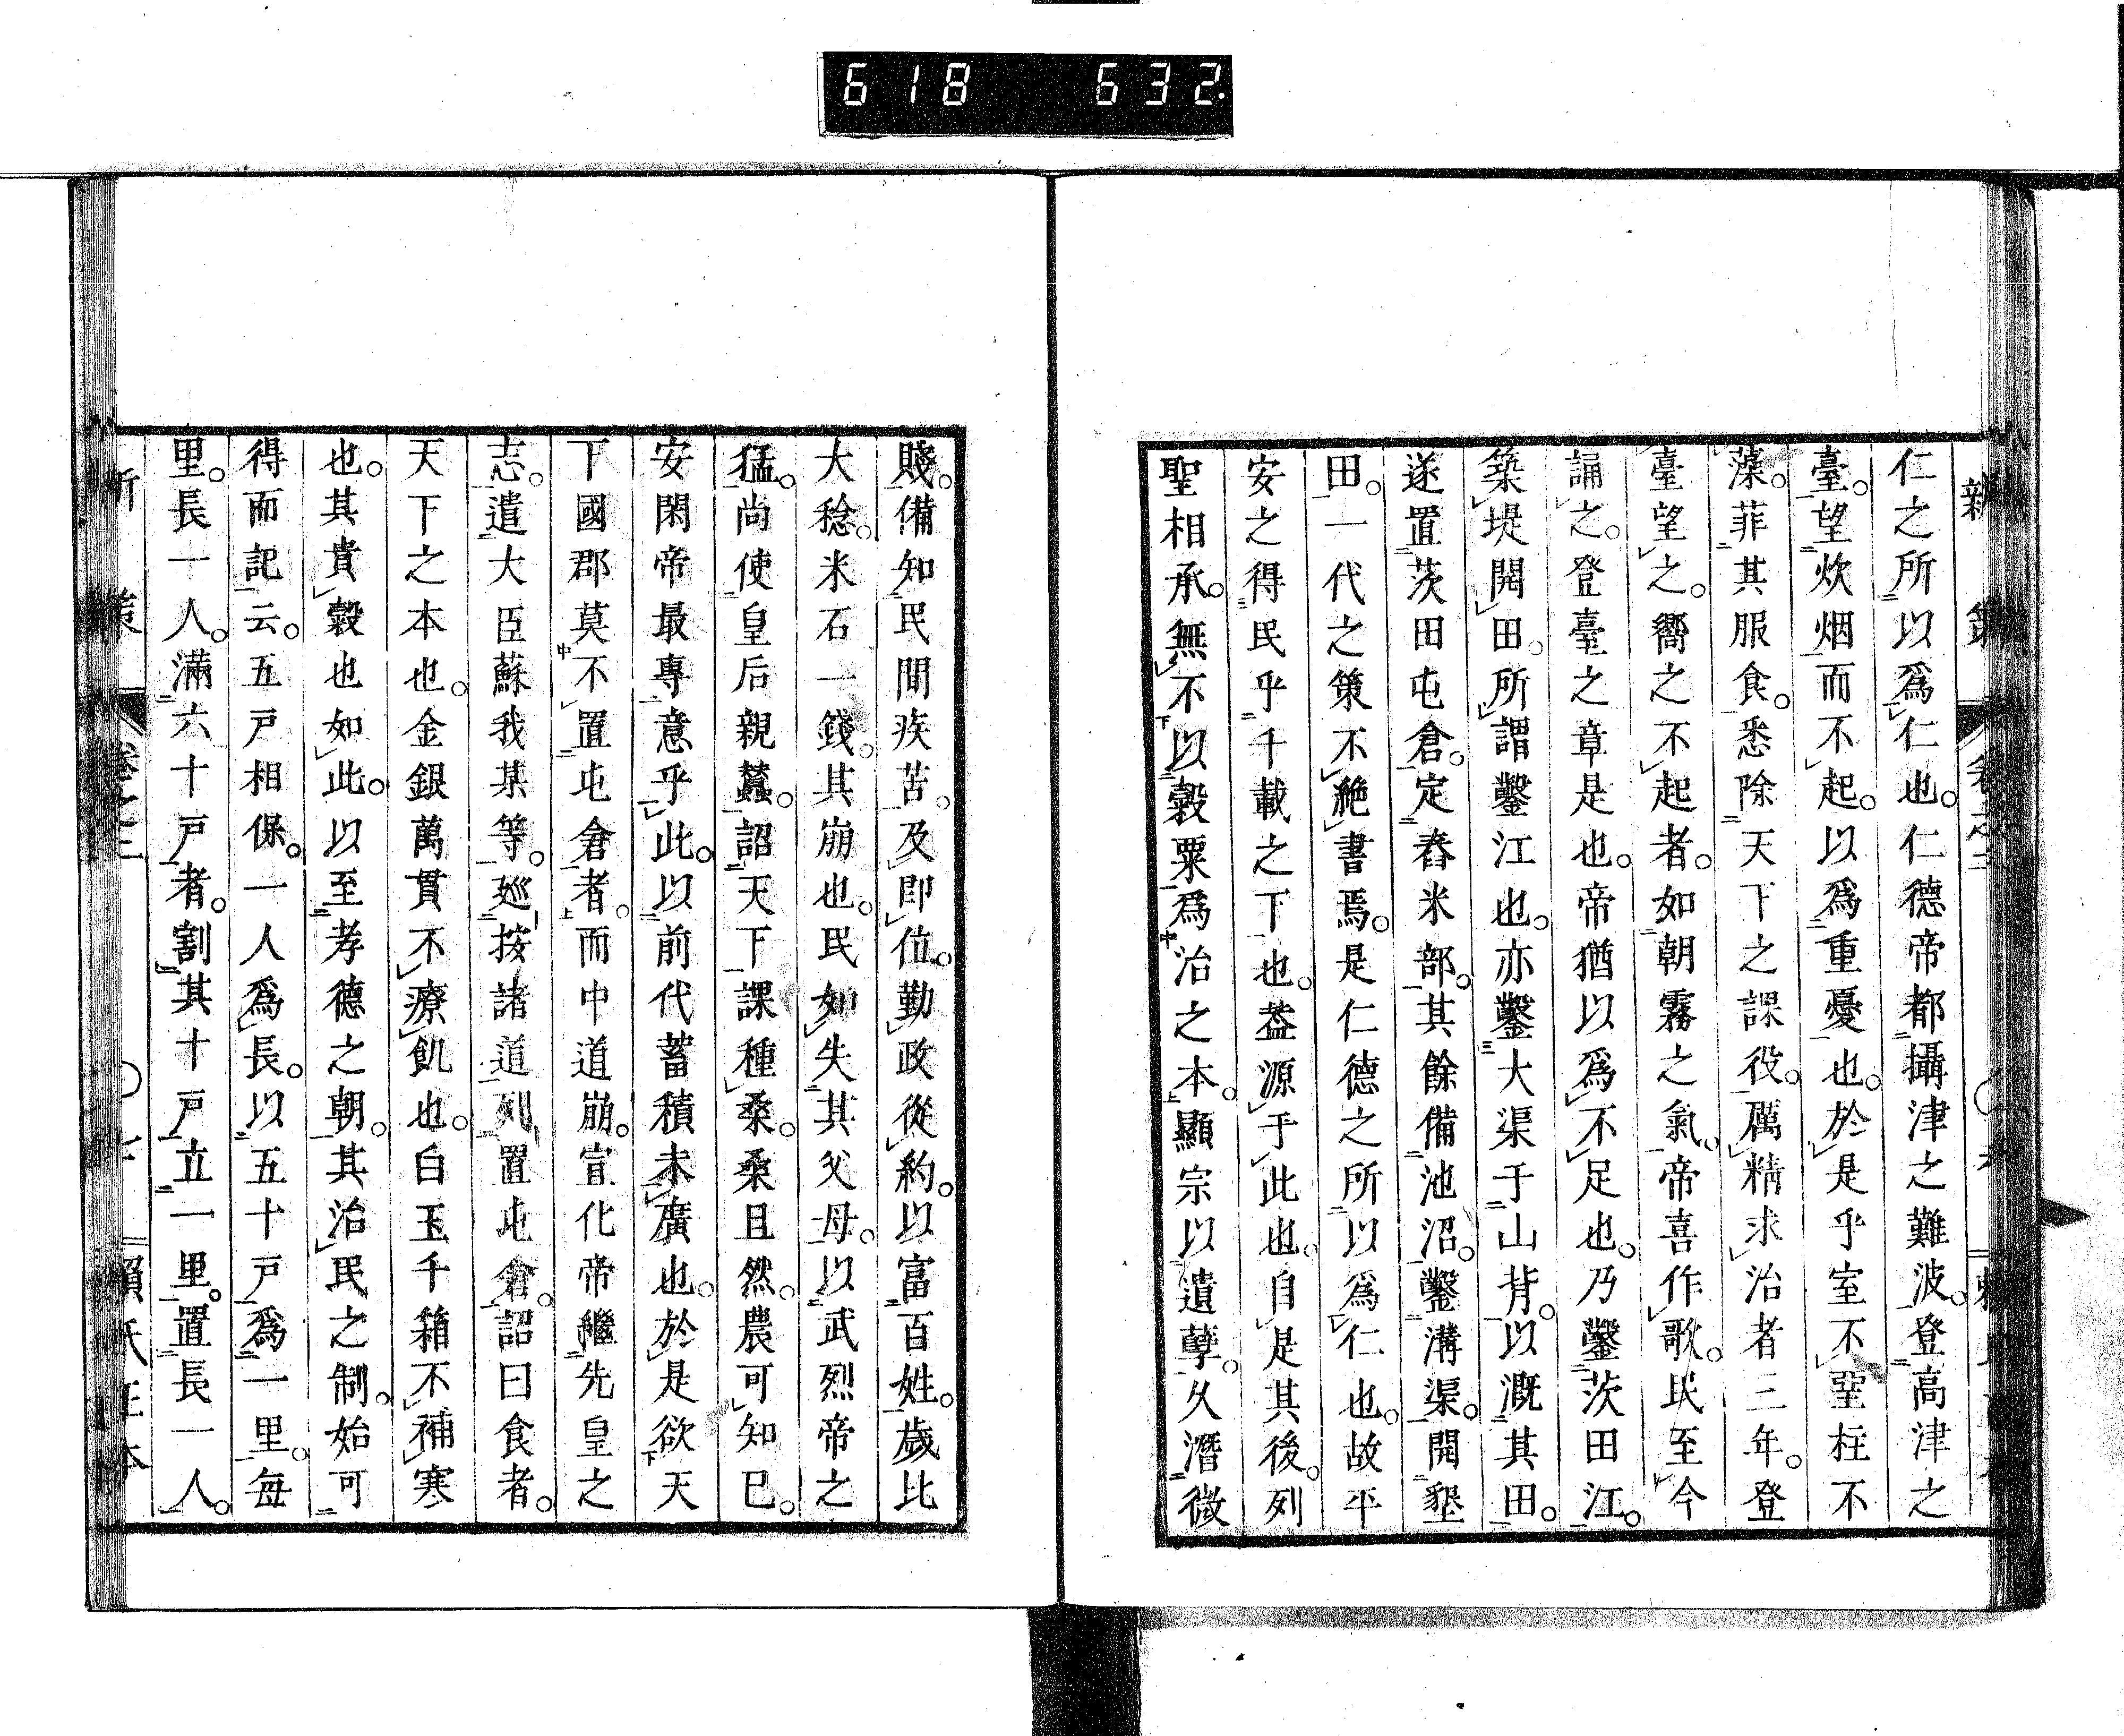 618 632.
新策 卷之二
仁之所以爲仁也。仁德帝都攝津之難波。登高津之
臺。望炊烟而不起。以爲重憂也。於是乎室不堊柱不
藻。菲其服食。悉除天下之課役。厲精求治者三年。登
臺望之。嚮之不起者。如朝霧之氣。帝喜作歌。民至今
誦之。登臺之章是也。帝猶以爲不足也。乃鑿茨田江。
築堤開田。所謂鑿江也。亦鑿大渠于山背。以漑其田。
遂置茨田屯倉。定舂米部。其餘備池沼。鑿溝渠。開墾
田。一代之策不絶書焉。是仁德之所以爲仁也。故平
安之得民乎千載之下也。葢源于此也。自是其後。列
聖相承。無不以穀粟爲治之本。顯宗以遺孽。久潛微
賤。備知民間疾苦。及即位。勤政從約。以富百姓。歲比
大稔。米石一錢。其崩也。民如失其父母。以武烈帝之
猛。尚使皇后親蠶。詔天下課種桑。桑且然。農可知已。
安閑帝最專意乎此。以前代蓄積未廣也。於是欲天
下國郡莫不置屯倉者。而中道崩。宣化帝繼先皇之
志。遣大臣蘇我某等。廵按諸道。列置屯倉。詔曰食者。
天下之本也。金銀萬貫不療飢也。白玉千箱不補寒
也。其貴穀也如此。以至孝德之朝。其治民之制。始可
得而記云。五戸相保。一人爲長。以五十戸爲一里。每
里。長一人。滿六十戸者。割其十戸立一里。置長一人。
新策 卷之二 賴氏正本